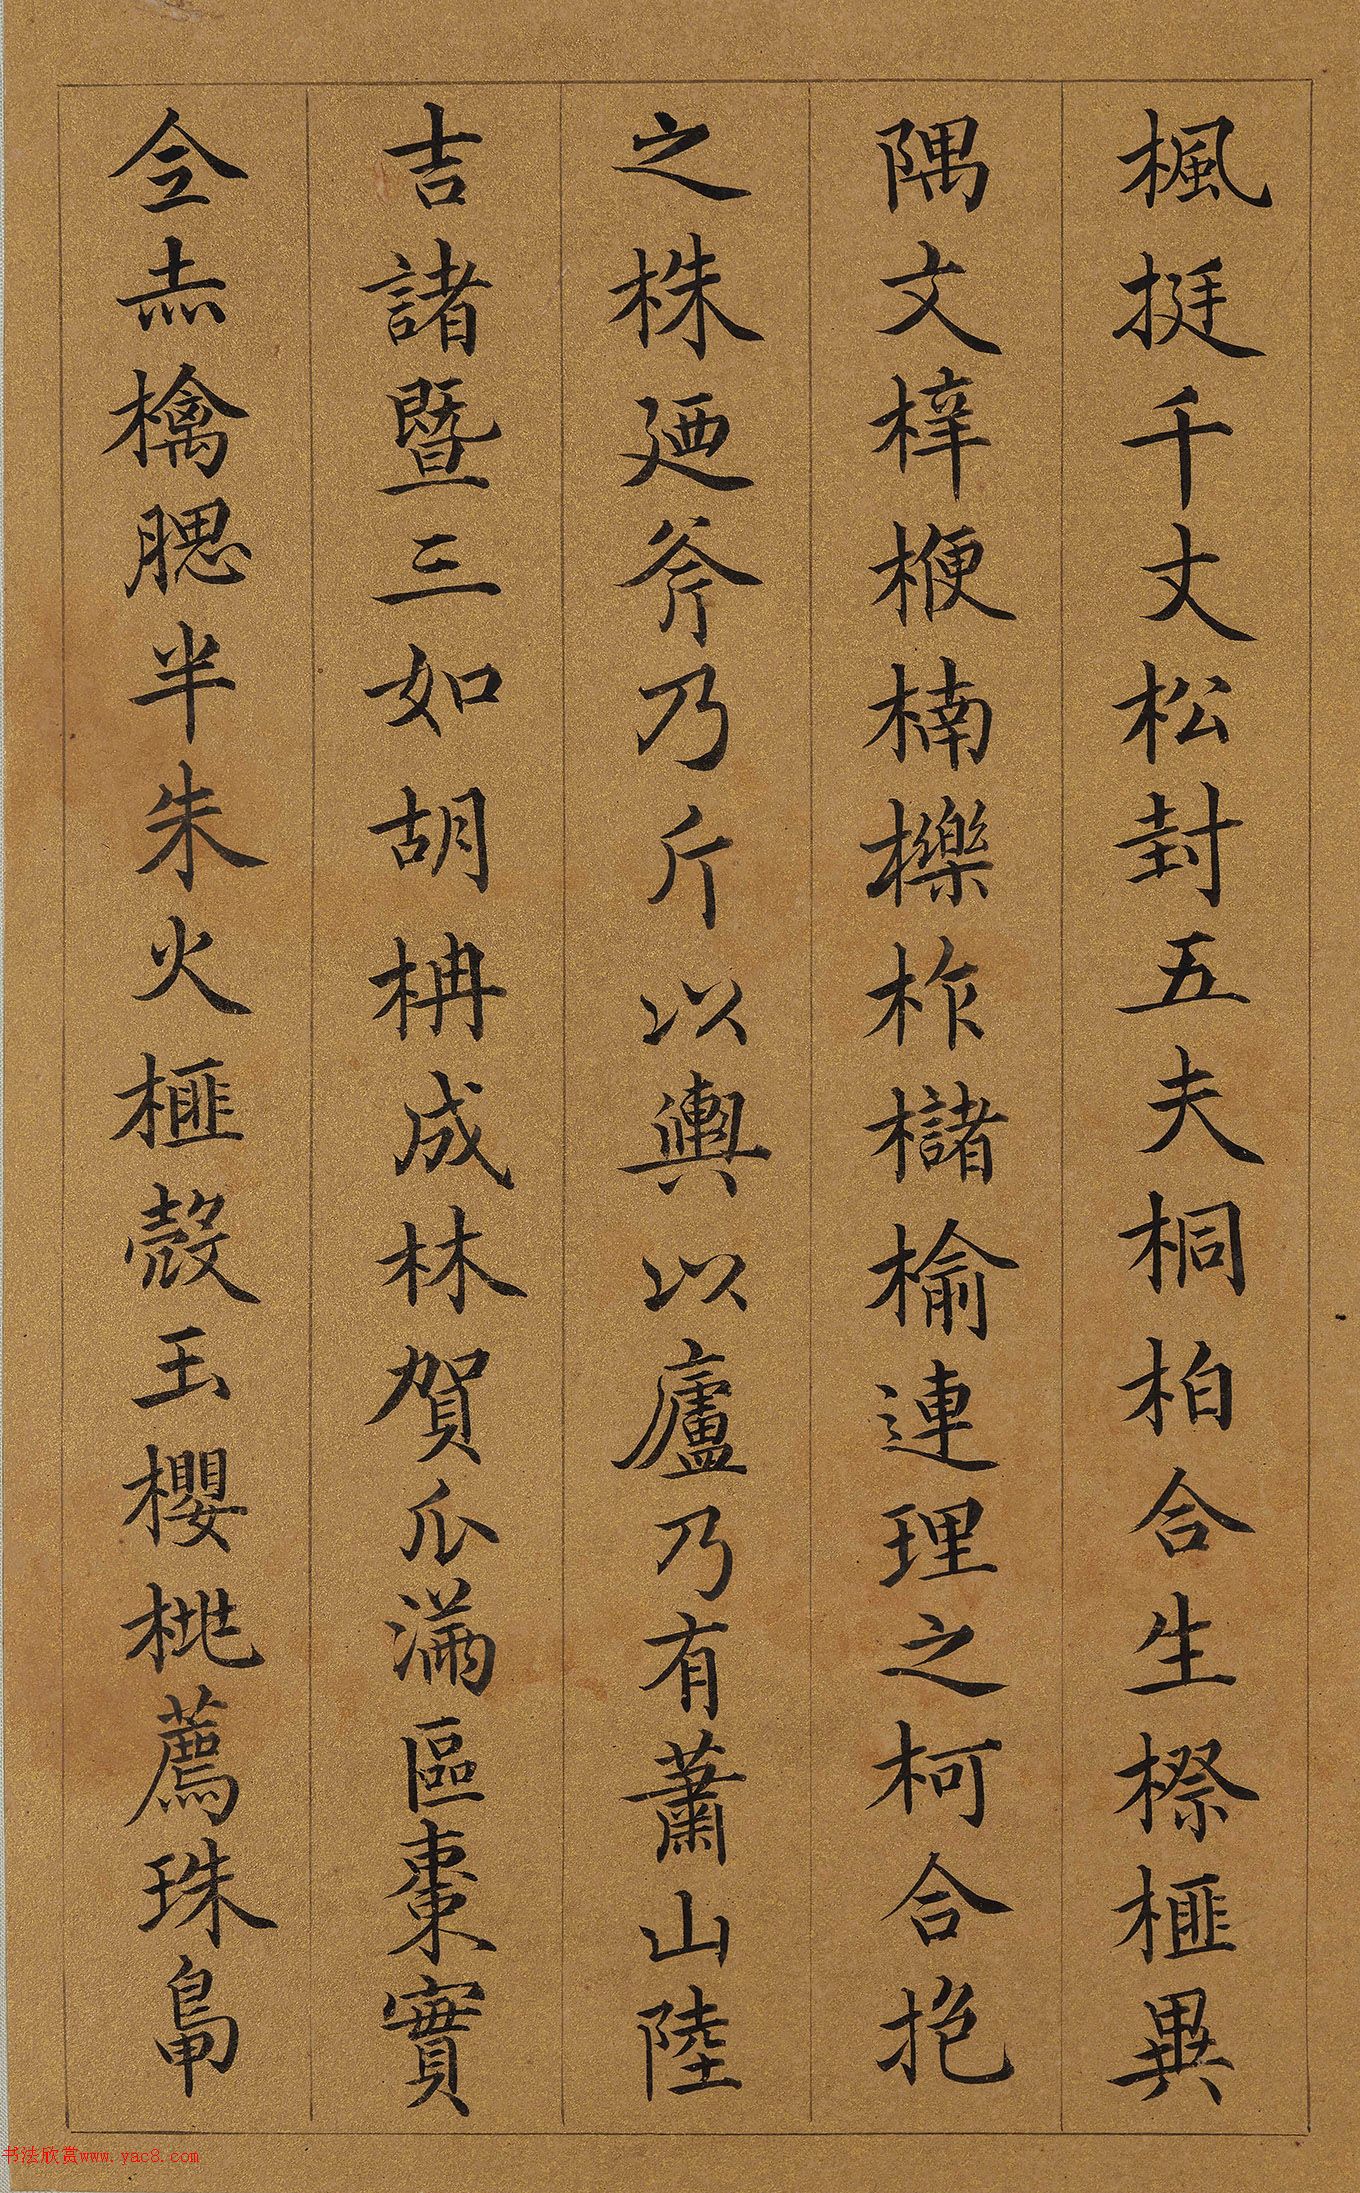 楓挺千丈松封五夫桐柏合生榧異
隅文梓楩楠櫟柞櫧榆連理之柯合抱
之株廼斧乃斤以輿以廬乃有蕭山陸
吉諸暨三如胡柟成林賀瓜滿區棗實
全赤檎腮半朱火榧殼玉櫻桃薦珠鴨
书法欣赏www.yac8.com